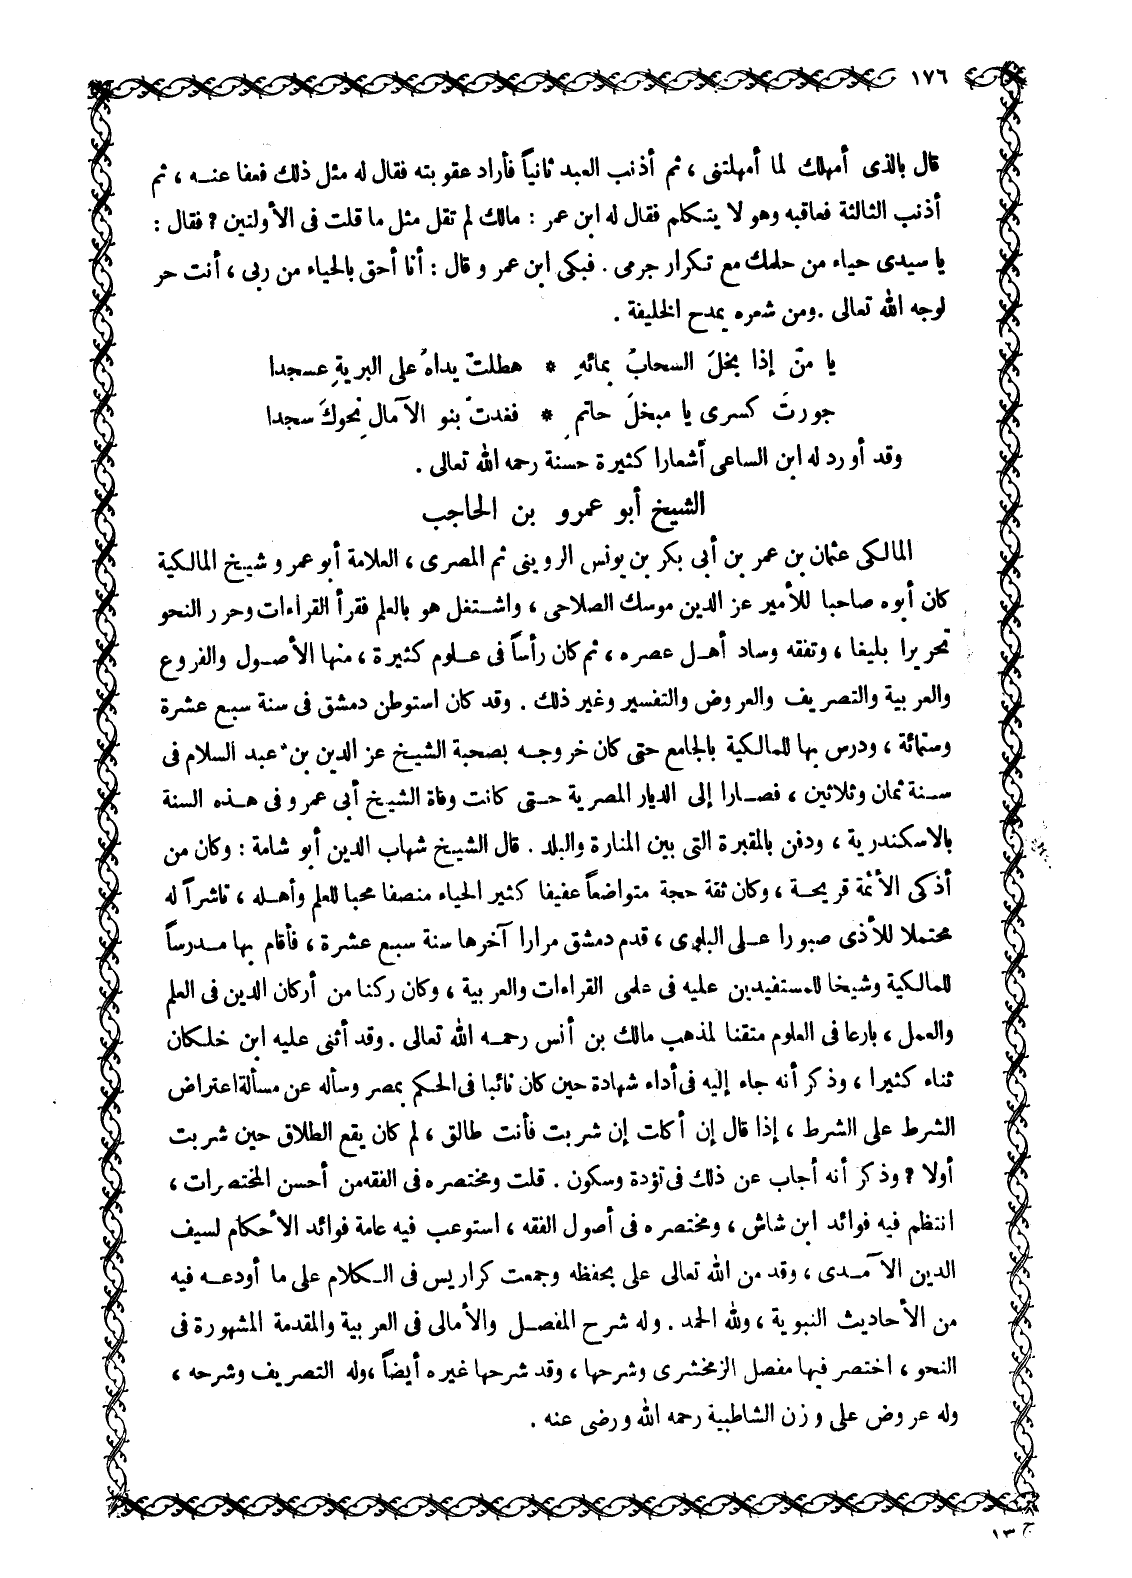 ١٧٦
قال بالذى أمهلك لما أمهلتنى ، ثم أذنب العبد ثانياً فأراد عقوبته فقال له مثل ذلك فعفا عنه ، ثم
أذنب الثالثة فعاقبه وهو لا يتكلم فقال له ابن عمر : مالك لم تقل مثل ما قلت فى الأولتين ? فقال :
يا سيدى حياء من حلمك مع تكرار جرمى . فبكى ابن عمر وقال : أنا أحق بالحياء من ربى ، أنت حر
لوجه الله تعالى . ومن شعره يمدح الخليفة .
يا منْ إذا بخلَ السحابُ بمائهِ * هطلتْ يداهُ على البريةِ عسجدا
جورتَ كسرى يا مبخلَ حاتمٍ * فغدتْ بنو الآمال نحوكَ سجدا
وقد أورد له ابن الساعى أشعارا كثيرة حسنة رحمه الله تعالى .
الشيخ أبو عمرو بن الحاجب
المالكى عثمان بن عمر بن أبى بكر بن يونس الروينى ثم المصرى ، العلامة أبو عمرو شيخ المالكية
كان أبوه صاحبا للأمير عز الدين موسك الصلاحى ، واشتغل هو بالعلم فقرأ القراءات وحرر النحو
تحريرا بليغا ، وتفقه وساد أهل عصره ، ثم كان رأساً فى علوم كثيرة ، منها الأصول والفروع
والعربية والتصريف والعروض والتفسير وغير ذلك . وقد كان استوطن دمشق فى سنة سبع عشرة
وستمائة ، ودرس بها للمالكية بالجامع حتى كان خروجه بصحبة الشيخ عز الدين بن عبد السلام فى
سنة ثمان وثلاثين ، فصارا إلى الديار المصرية حتى كانت وفاة الشيخ أبى عمرو فى هذه السنة
بالاسكندرية ، ودفن بالمقبرة التى بين المنارة والبلد . قال الشيخ شهاب الدين أبو شامة : وكان من
أذكى الأئمة قريحة ، وكان ثقة حجة متواضعاً عفيفا كثير الحياء منصفا محبا للعلم وأهله ، ناشراً له
محتملا للأذى صبورا على البلوى ، قدم دمشق مرارا آخرها سنة سبع عشرة ، فأقام بها مدرساً
للمالكية وشيخا للمستفيدين عليه فى علمى القراءات والعربية ، وكان ركنا من أركان الدين فى العلم
والعمل ، بارعا فى العلوم متقنا لمذهب مالك بن أنس رحمه الله تعالى . وقد أثنى عليه ابن خلكان
ثناء كثيرا ، وذكر أنه جاء إليه فى أداء شهادة حين كان نائبا فى الحكم بمصر وسأله عن مسألة اعتراض
الشرط على الشرط ، إذا قال إن أكلت إن شربت فأنت طالق ، لم كان يقع الطلاق حين شربت
أولا ? وذكر أنه أجاب عن ذلك فى تؤدة وسكون . قلت ومختصره فى الفقه من أحسن المختصرات ،
انتظم فيه فوائد ابن شاش ، ومختصره فى أصول الفقه ، استوعب فيه عامة فوائد الأحكام لسيف
الدين الآمدى ، وقد من الله تعالى على بحفظه وجمعت كراريس فى الكلام على ما أودعه فيه
من الأحاديث النبوية ، ولله الحمد . وله شرح المفصل والأمالى فى العربية والمقدمة المشهورة فى
النحو ، اختصر فيها مفصل الزمخشرى وشرحها ، وقد شرحها غيره أيضاً ، وله التصريف وشرحه ،
وله عروض على وزن الشاطبية رحمه الله ورضى عنه .
ج ١٣